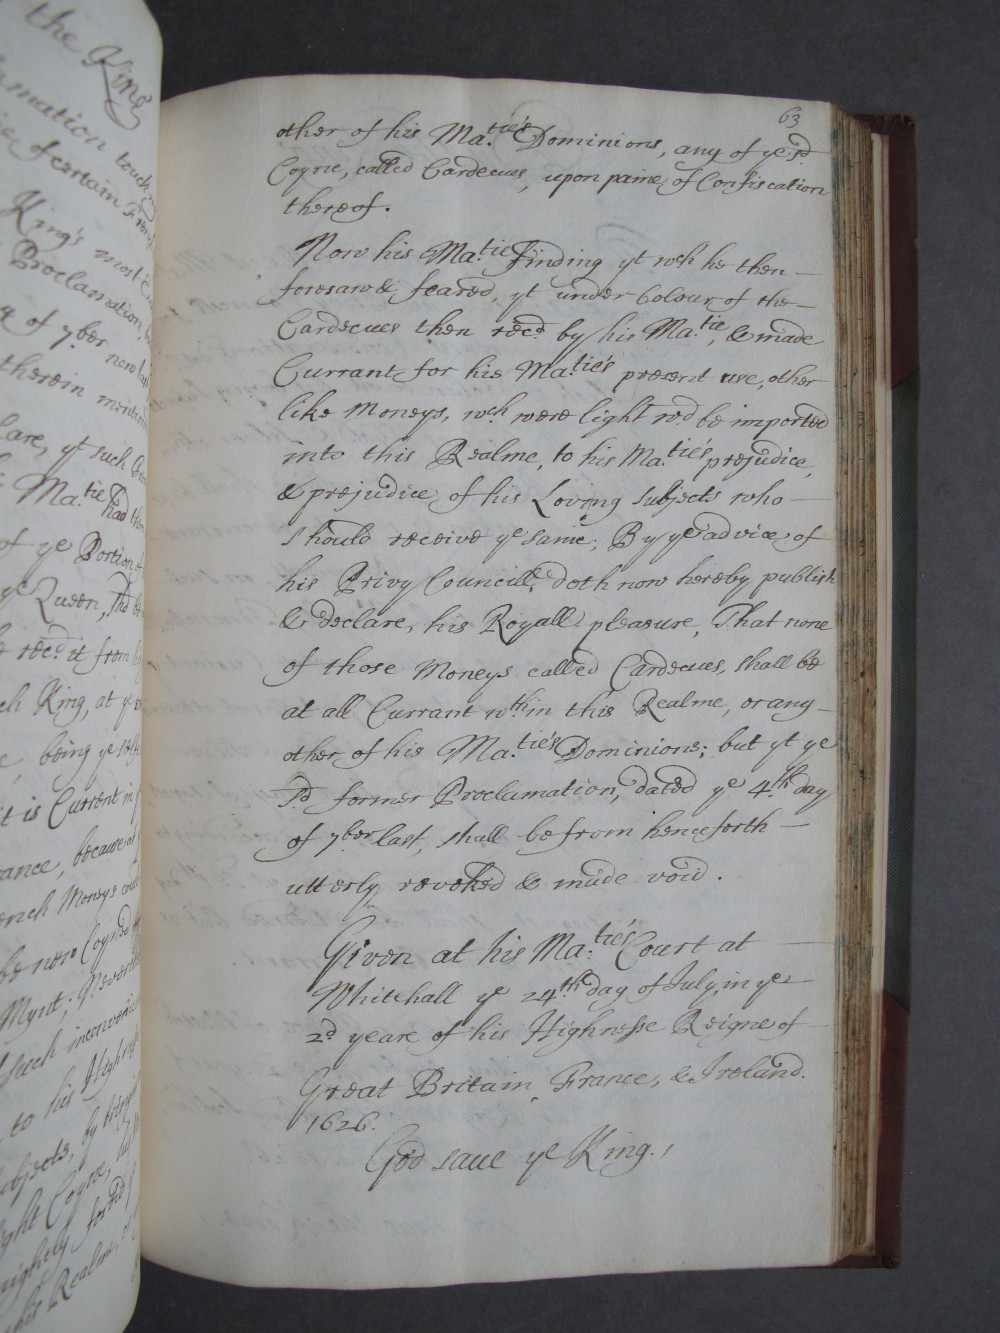 the King
touch
of certain
King's most
Proclamation,
of 7ber now last
therein
lare, yt such
Ma.tie had
of ye Portion
ye Queen,
rec.d it from
King, at ye
being ye
it is Current in
because
ench Moneys
be new Coyned
Mynt; Never
such inconveni
to his Highness
by
ght Coyne, his
this Realme, or
63
other of his Ma.tie's Dominions, any of ye s.d
Coyne, called Cardecues, upon paine of Confiscation
thereof.
Now his Ma.tie Finding yt wch he then —
foresawe & feared, yt under Colour of the —
Cardecues then rec.d by his Ma.tie, & made
Currant for his Ma.tie's present use, other
like Moneys, wch were light w.d be imported
into this Realme, to his Ma.tie's prejudice,
& prejudice of his Loving Subjects who —
should receive ye same; By ye advice of
his Privy Councill, doth now hereby publish
& declare, his Royall pleasure, That none
of those Moneys called Cardecues, shall be
at all Currant wthin this Realme, or any —
other of his Ma.tie's Dominions; but yt ye
s.d former Proclamation, dated ye 4.th day
of 7ber last, shall be from henceforth —
utterly revoked & made void.
Given at his Ma.tie's Court at —
Whitehall ye 24.th day of July, in ye —
2.d yeare of his Highnesse Reigne of —
Great Britain, France, & Ireland.
1626.
God save ye King.